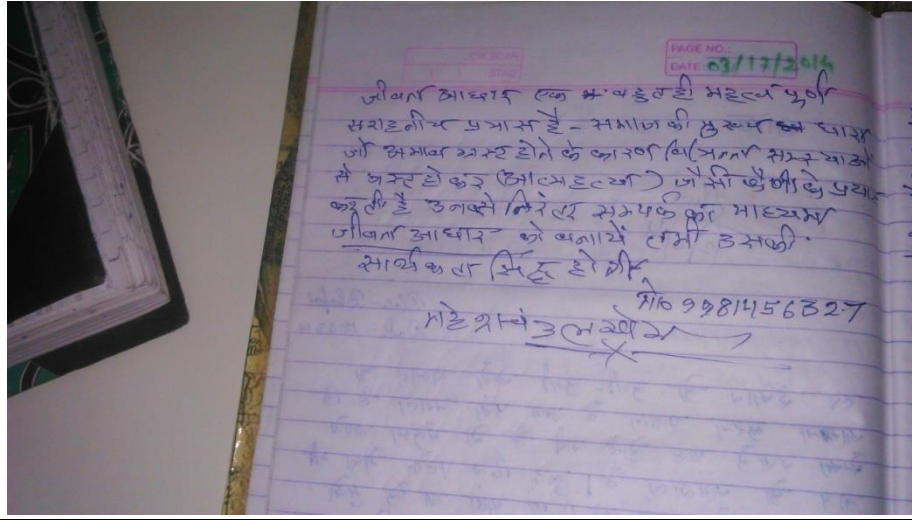 PAGE NO.:
DATE: 03/17/2014
जीवन आधार एक बहुत ही महत्व पूर्ण
सराहनीय प्रयास है - समाज की मुख्य धारा
जो अभाव ग्रस्त होने के कारण विभिन्न समस्याओं
से त्रस्त हो कर (आत्महत्या) जैसी के प्रयास
करती है उनसे निरंतर सम्पर्क का माध्यम
जीवन आधार को बनायें तभी उसकी
सार्थकता सिद्ध होगी
मो० 9981456327